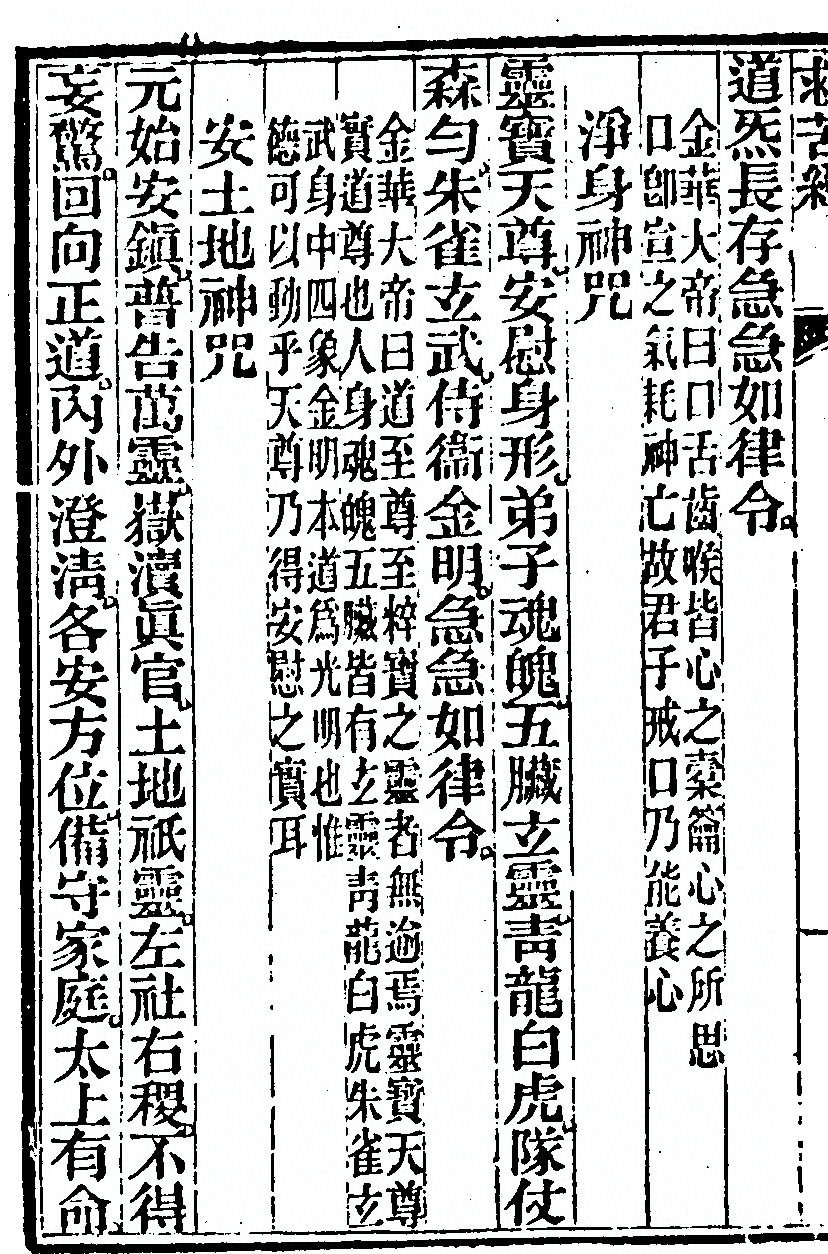 救苦經
道炁長存急急如律令
金華大帝曰口舌齒喉皆心之橐籥心之所思
口卽宣之氣耗神亡故君子戒口乃能養心
淨身神咒
靈寶天尊安慰身形弟子魂魄五臟玄靈靑龍白虎隊仗
森勻朱雀玄武侍衞金明急急如律令
金華大帝曰道至尊至粹寶之靈者無逾焉靈寶天尊
實道尊也人身魂魄五臟皆有玄靈靑龍白虎朱雀玄
武身中四象金明本道爲光明也惟
德可以動乎天尊乃得安慰之實耳
安土地神咒
元始安鎭普告萬靈嶽瀆眞官土地祇靈左社右稷不得
妄驚回向正道內外澄淸各安方位備守家庭太上有命